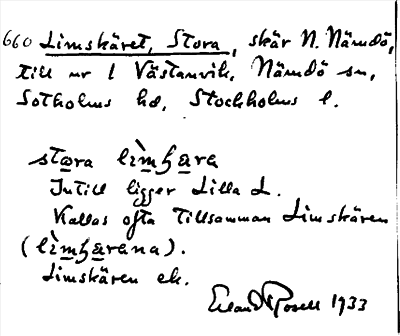 660 Limskäret, Stora, skär N. Nämdö,
till nr 1 Västanvik, Nämdö sn,
Sotholms hd, Stockholms l.
stora lìmʃæra
Intill ligger Lilla L.
Kallas ofta tillsamman Limskären
(lìmʃærana).
Limskären ek.
Erland Rosell 1933